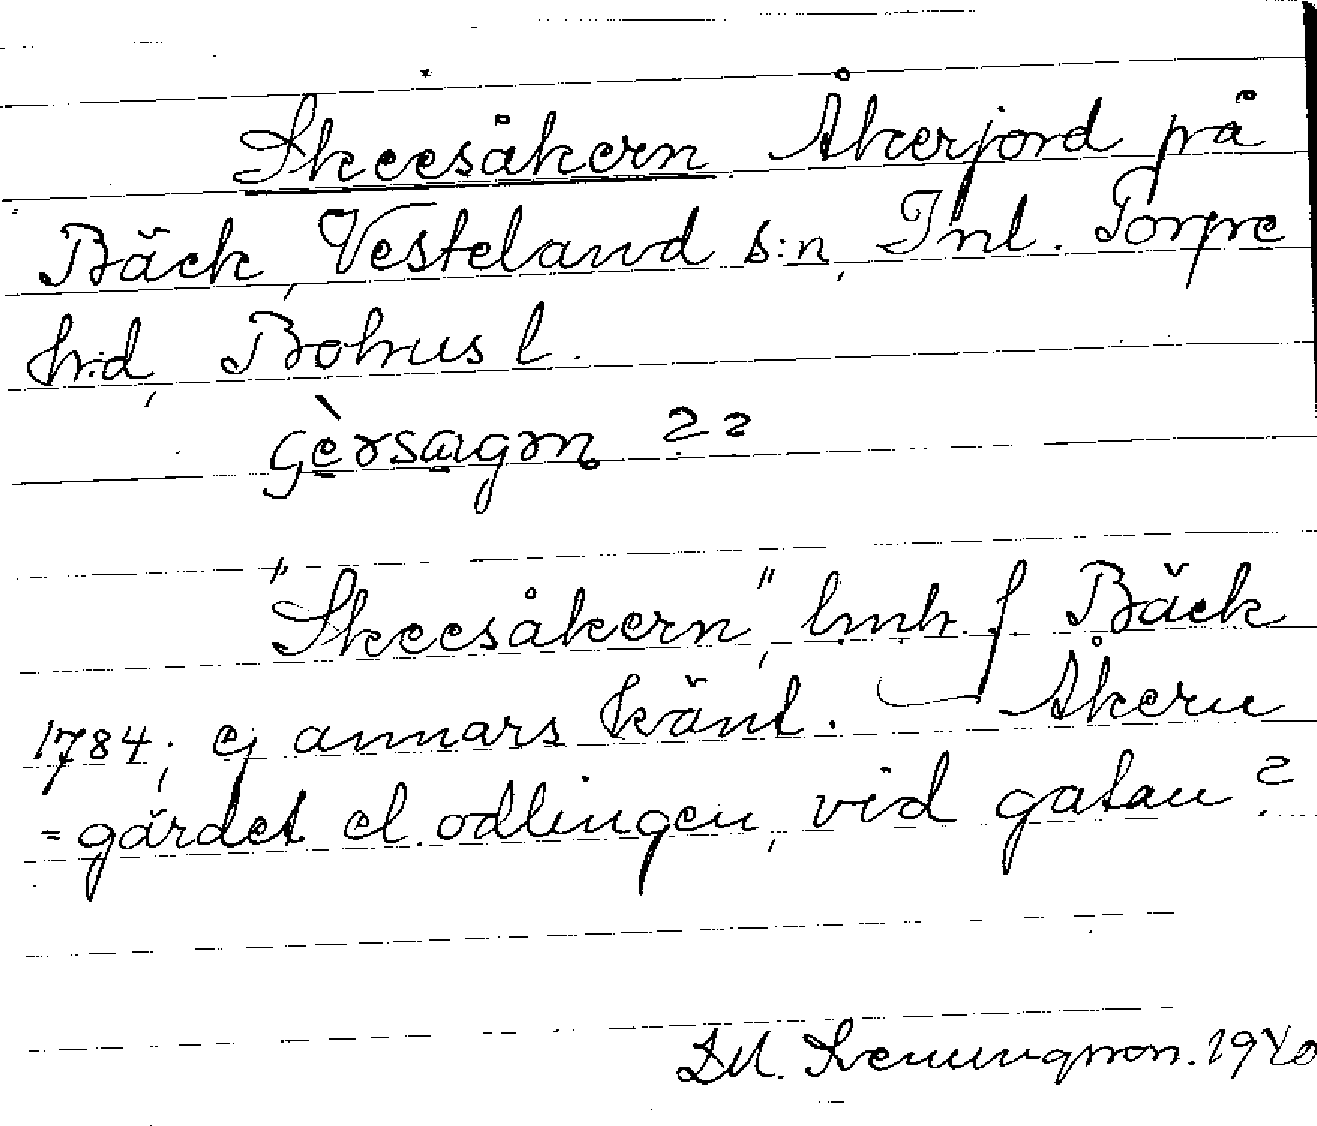 Skeesåkern Åkerjord på
Bäck, Vesteland s:n, Inl. Torpe
hd, Bohus l.
"Skeesåkern", lmh. f Bäck
1784; ej annars känt. Åkern
= gärdet el. odlingen, vid gatan?
1940